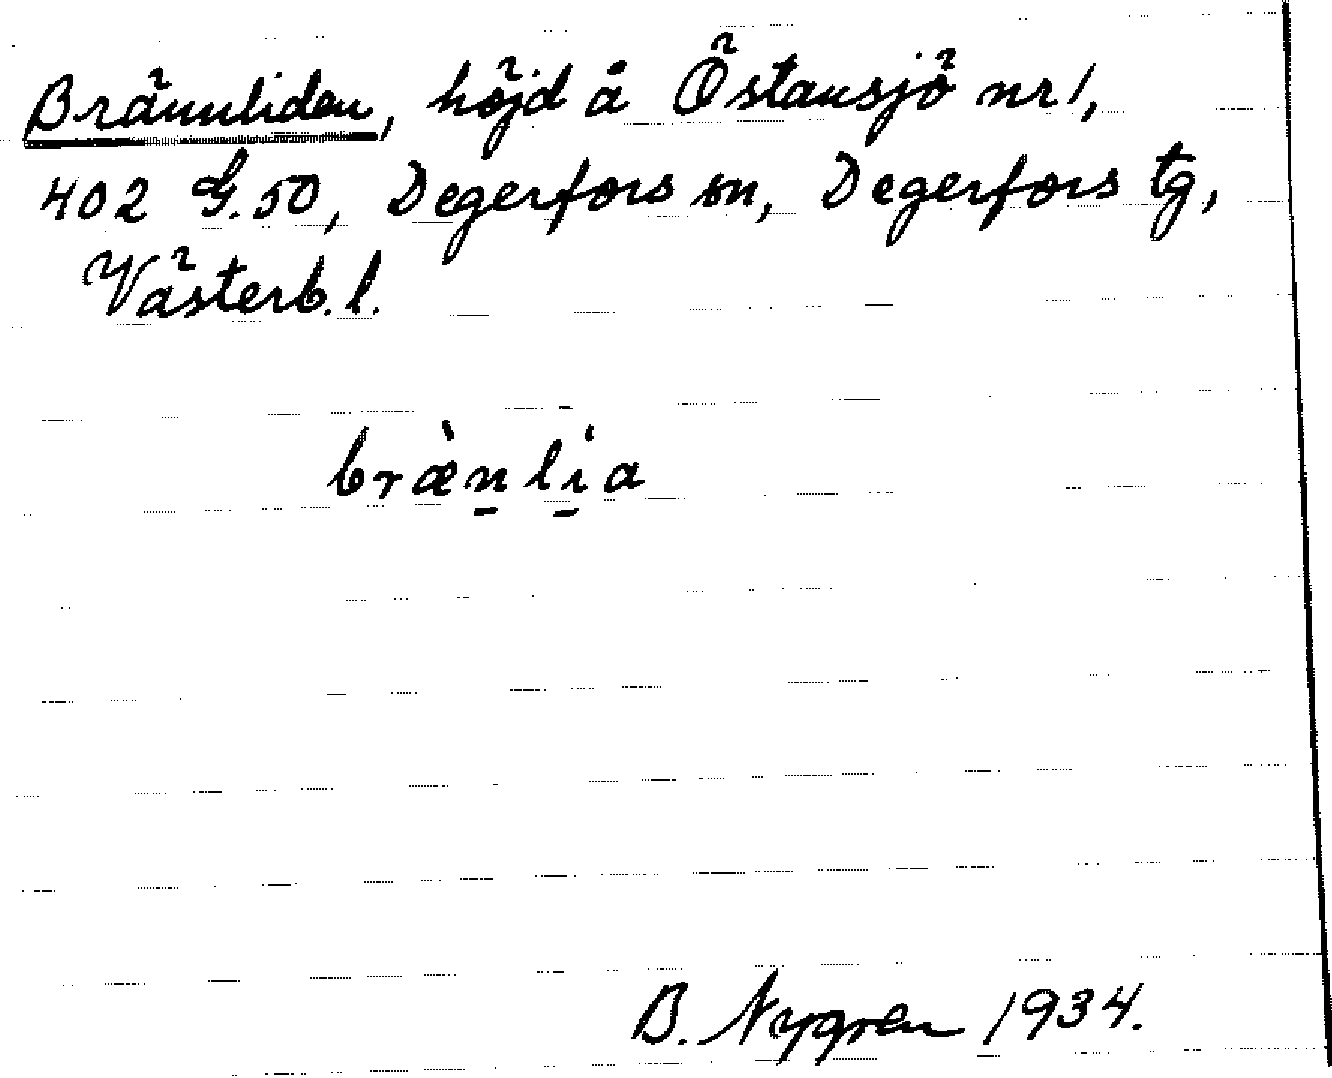 Brännliden, höjd å Östansjö nr 1,
402 G. 50, Degerfors sn, Degerfors tg,
Västerb. l.
bræ̀n̠li̠a
B. Nygren 1934.